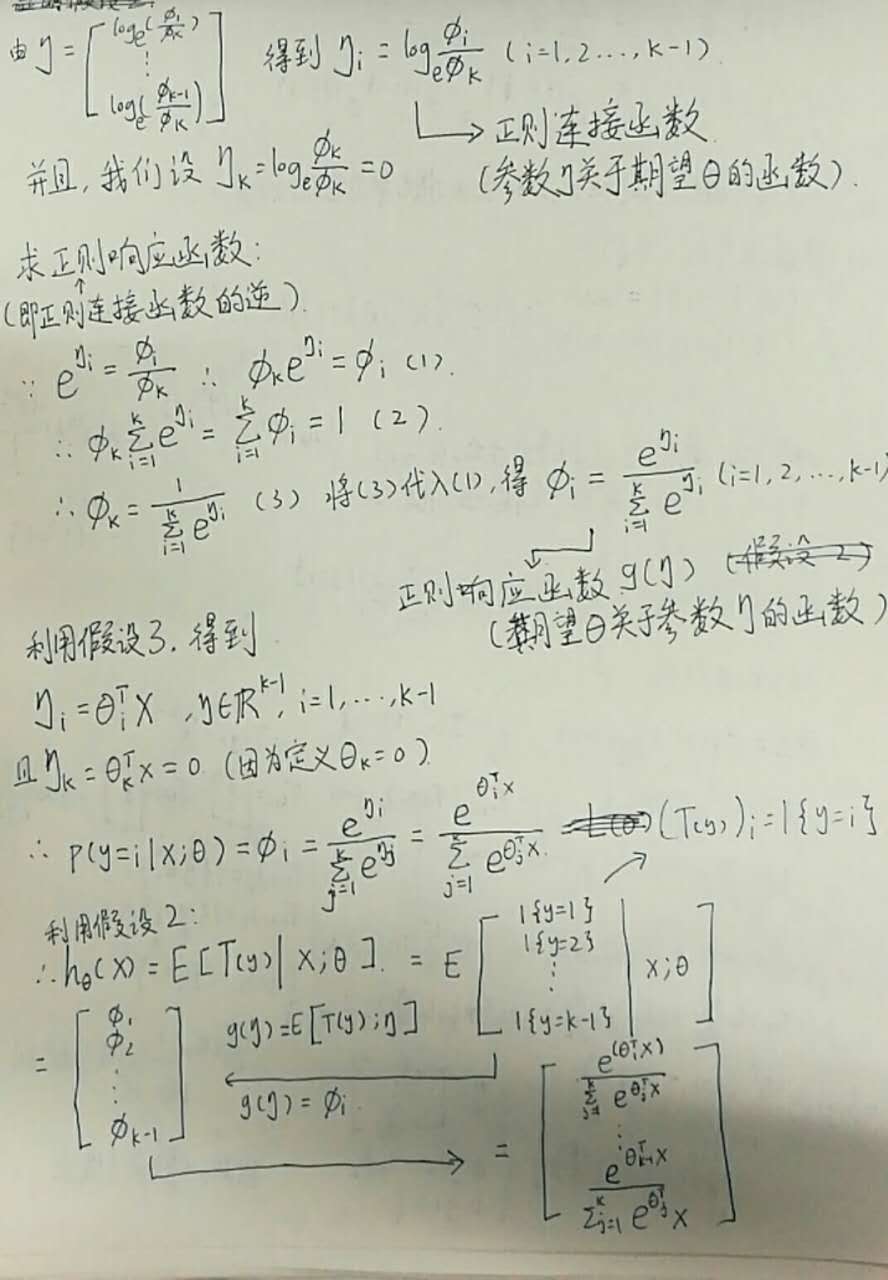 由 η = [log_e(φ₁/φ_k) ⋮ log_e(φ_{k-1}/φ_k)] 得到 η_i = log_e φ_i/φ_k (i=1,2...,k-1)
→ 正则连接函数
并且,我们设 η_k = log_e φ_k/φ_k = 0 (参数η关于期望θ的函数).
求正则响应函数:
(即正则连接函数的逆).
∵ e^{η_i} = φ_i/φ_k ∴ φ_k e^{η_i} = φ_i (1).
∴ φ_k Σ_{i=1}^{k} e^{η_i} = Σ_{i=1}^{k} φ_i = 1 (2).
∴ φ_k = 1/Σ_{i=1}^{k} e^{η_i} (3) 将(3)代入(1),得 φ_i = e^{η_i}/Σ_{i=1}^{k} e^{η_i} (i=1,2,...,k-1)
正则响应函数 g(η) (假设2)
(期望θ关于参数η的函数)
利用假设3,得到
η_i = θ_i^T x , η∈R^{k-1}, i=1,...,k-1
且 η_k = θ_k^T x = 0 (因为定义θ_k=0).
∴ p(y=i|x;θ) = φ_i = e^{η_i}/Σ_{j=1}^{k} e^{η_j} = e^{θ_i^T x}/Σ_{j=1}^{k} e^{θ_j^T x} (T(y))_i = 1{y=i}
利用假设2:
∴ h_θ(x) = E[T(y)|x;θ]. = E[1{y=1} 1{y=2} ⋮ 1{y=k-1} | x;θ]
= [φ₁ φ₂ ⋮ φ_{k-1}] g(η)=E[T(y);η]
g(η) = φ_i
= [e^{(θ₁^T x)}/Σ_{j=1}^{k} e^{θ_j^T x} ⋮ e^{θ_{k-1}^T x}/Σ_{j=1}^{k} e^{θ_j^T} x]